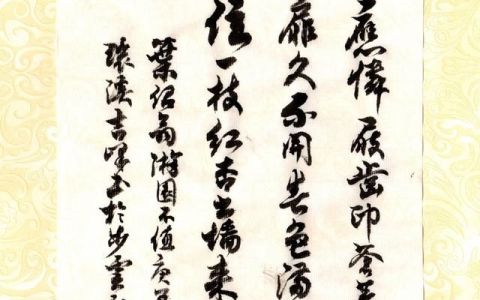 應憐屐齒印蒼
扉久不開春色滿
住一枝紅杏出墻來
葉紹翁游園不值庚
吉峰书於步雲